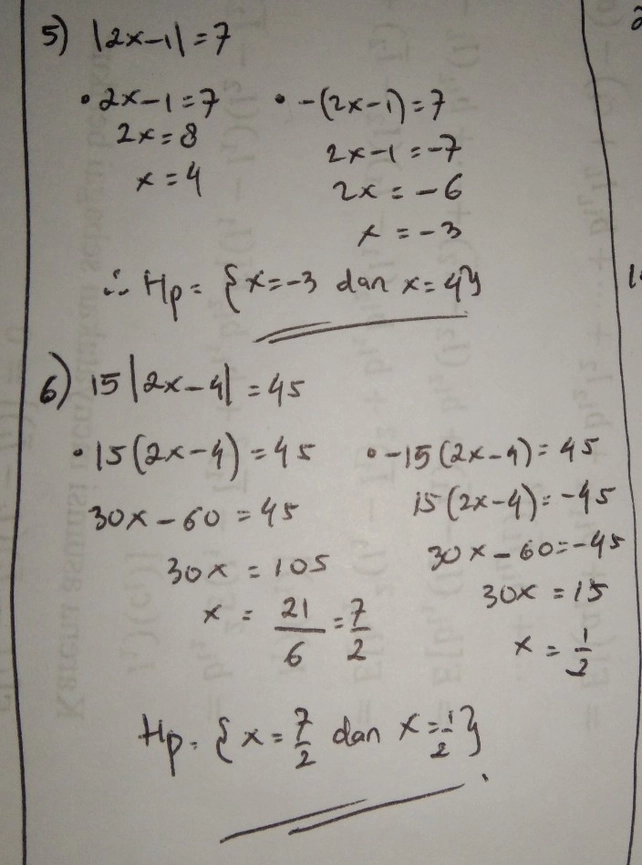 5) |2x-1| = 7
• 2x-1 = 7
2x = 8
x = 4
• -(2x-1) = 7
2x-1 = -7
2x = -6
x = -3
∴ Hp = {x=-3 dan x=4}
6) 15|2x-4| = 45
• 15(2x-4) = 45
30x - 60 = 45
30x = 105
x = 21/6 = 7/2
• -15(2x-4) = 45
15(2x-4) = -45
30x - 60 = -45
30x = 15
x = 1/2
Hp = {x = 7/2 dan x = 1/2}